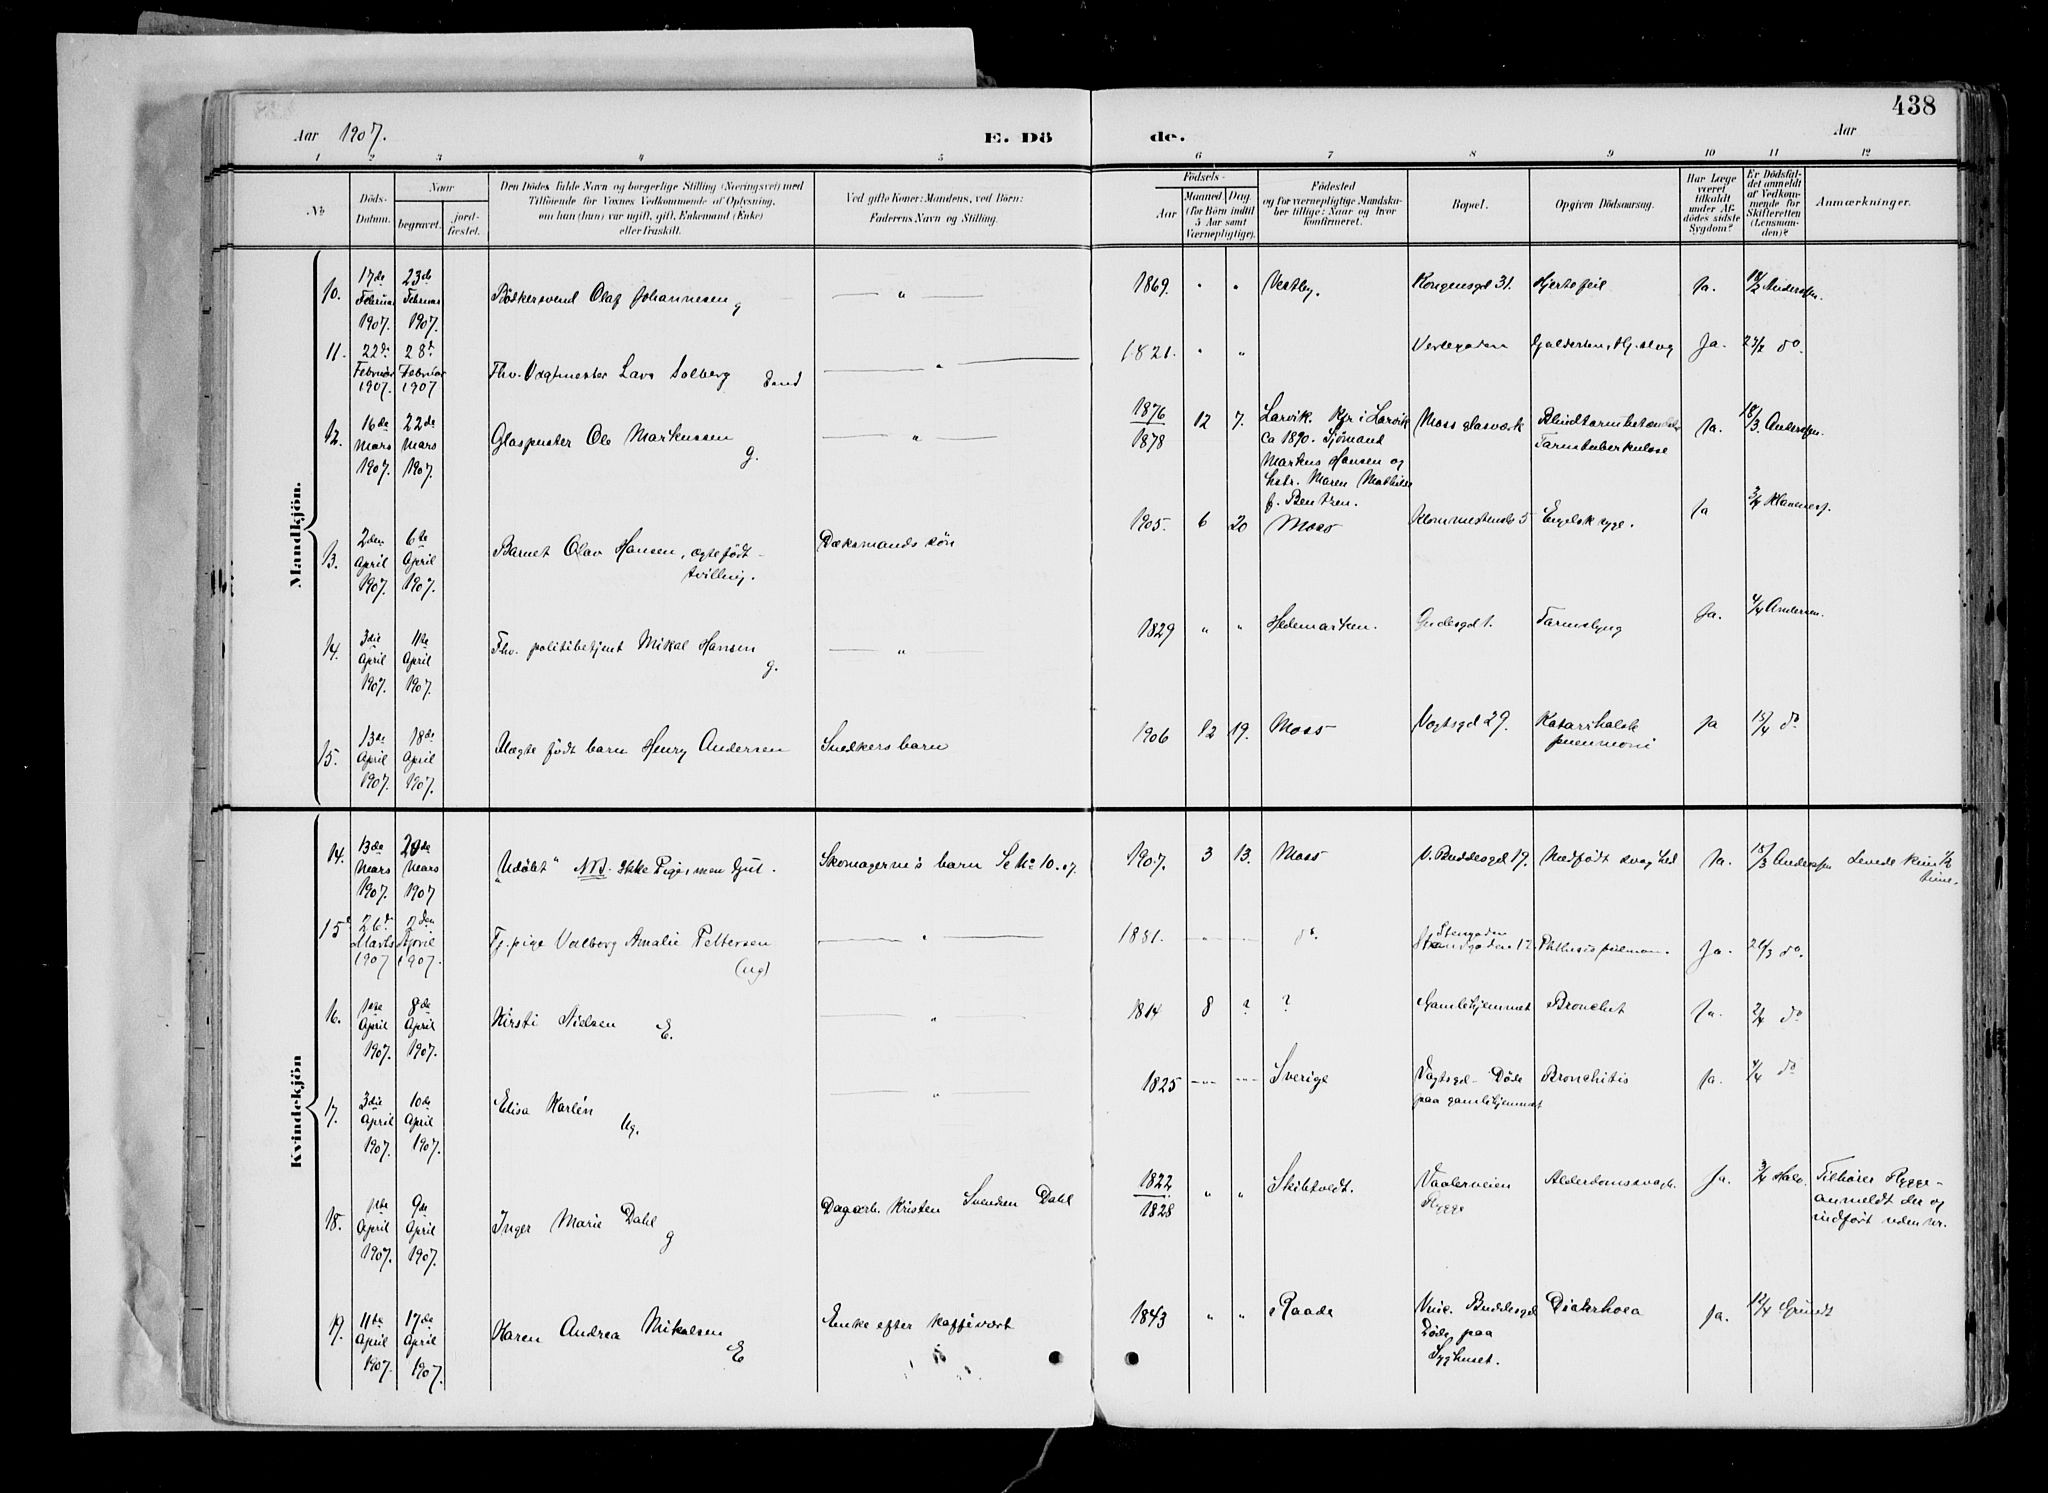 438
Aar 1907.
E. Dö
de.
Aar
1 2 3 4 5 6 7 8 9 10 11 12
No
Döds-
Datum.
Naar
begravet.
jord-
fæstet.
Den Dödes fulde Navn og borgerlige Stilling (Næringsvei) med
Tilföiende for Voxnes Vedkommende af Oplysning,
om han (hun) var ugift, gift, Enkemand (Enke)
eller fraskilt.
Ved gifte Koner: Mandens, ved Börn:
Faderens Navn og Stilling.
Födsels-
Aar
Maaned Dag
(for Börn indtil
5 Aar samt
Værnepligtige).
Födested
og for værnepligtige Mandska-
ber tillige: Naar og hvor
konfirmeret.
Bopæl.
Opgiven Dödsaarsag.
Har Læge
været
tilkaldt
under Af-
dödes sidste
Sygdom?
Er Dödsfal-
det anmeldt
af Vedkom-
mende for
Skifteretten
(Lensman-
den)?
Anmærkninger.
Mandkjön.
10. 17de Februar 1907. 23de Februar 1907. Bödkersvend Olaf Johannesen g " 1869. " " Vestby. Kongensgd 31. Hjertefeil Ja. 18/2 Anderssen.
11. 22de Februar 1907. 28de Februar 1907 Fhv. Vagtmester Lars Solberg " 1821. " " Ja. do.
12. 16de Mars 1907. 22de Mars 1907. Glaspuster Ole Markussen g. " 1876/1878 12 7. Larvik. Kfr. i Larvik
ca 1890. Sjömand
Markus Hansen og
hstr. Maren Mathilde
f. Bentzen.
Moss glasværk
Tarmtuberkulose
Ja. 18/3. Anderssen.
13. 2den April 1907. 6te April 1907. Barnet Olav Hansen, ægtefödt
tvilling.
Dæksmands sön 1905. 6 20 Moss Engelsk syge. Ja
14. 3die April 1907. 11te April 1907. Fhv. politibetjent Mikal Hansen g. " 1829 " " Hedemarken. Gudesgd 1. Ja. 4/4 Andersen.
15. 13de April 1907. 18de April 1907. Uægte födt barn Henry Andersen Snedkers barn 1906 12 19. Moss Vogtsgd 29. Katarrhalsk
pneumoni
Ja 15/4 do
Kvindekjön
14. 13de Mars 1907. 20de Mars 1907 "Udöbt" NB. Ikke Pige, men Gut. Skomagernes barn Se No 10.07. 1907. 3 13. Moss V. Buddesgd 19. Medfödt svaghed Ja. 15/3 Anderssen Levede kun 1/2
time.
15 26de Marts 1907 2den April 1907. Tj. pige Valborg Amalie Pettersen
(ug)
" 1881. do. Stengaden
Strandgaden 12 Phthisis pulmon. Ja. do.
16. 1ste April 1907. 8de April 1907. Kirsti Nielsen E. " 1814 8 ? ? Gamlehjemmet Bronchit Ja. 2/4 do
17. 3die April 1907. 10de April 1907. Elisa Karlén Ug. " 1825 Sverige Vogtsgd - Döde
paa gamlehjemmet
Bronchitis Ja. 4/4 do
18. 1ste April 1907. 9de April 1907. Inger Marie Dahl g Dagarb. Kristen Svendsen Dahl 1822/1828 " " Skibtvedt. Vaalerveien
Rygge
Alderdomssvagh. Ja. Tilhörer Rygge -
anmeldt der og
indfört uden nr.
19. 11te April 1907. 17de April 1907. Karen Andrea Mikalsen E Enke efter kaffivært 1843 " " Raade Buddesgd
Döde paa
Syghuset.
Diahrhoea Ja. 12/4 Gründt